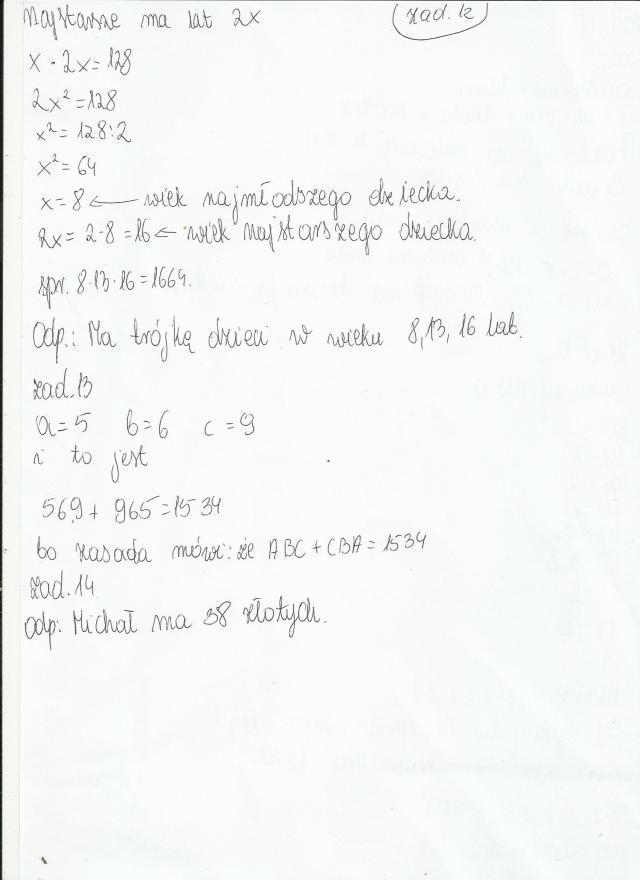 Najstarsze ma lat 2x
zad. 12
x · 2x = 128
2x² = 128
x² = 128:2
x² = 64
x = 8 ← wiek najmłodszego dziecka.
2x = 2·8 = 16 ← wiek najstarszego dziecka.
spr. 8·13·16 = 1664.
Odp.: Ma trójkę dzieci w wieku 8, 13, 16 lat.
zad. 13
a = 5 b = 6 c = 9
i to jest
569 + 965 = 1534
bo zasada mówi: że ABC + CBA = 1534
zad. 14
Odp: Michał ma 38 złotych.